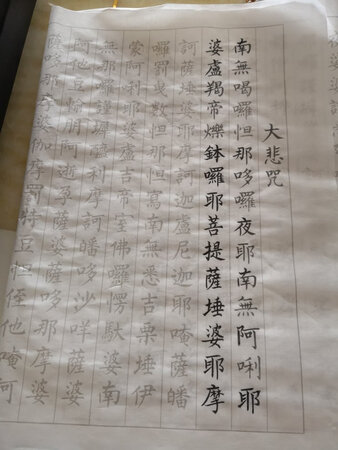 大悲咒
南無喝囉怛那哆囉夜耶南無阿唎耶
婆盧羯帝爍鉢囉耶菩提薩埵婆耶摩
訶薩埵婆耶摩訶迦盧尼迦耶唵薩皤
囉罰曳數怛那怛寫南無悉吉栗埵伊
蒙阿利耶婆盧吉帝室佛囉愣馱婆南
無那囉謹墀醯利摩訶皤哆沙咩薩婆
阿他豆輸朋阿逝孕薩婆薩哆那摩婆
薩哆那婆伽摩罰特豆怛侄他唵阿